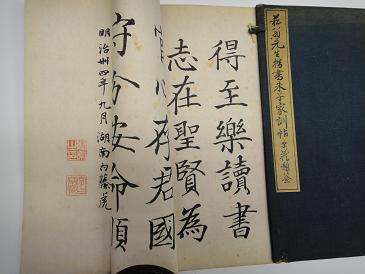 先生楷書朱子家訓帖
得至樂讀書
志在聖賢為
存君國
守分安命順
明治卅四年九月湖南内藤虎